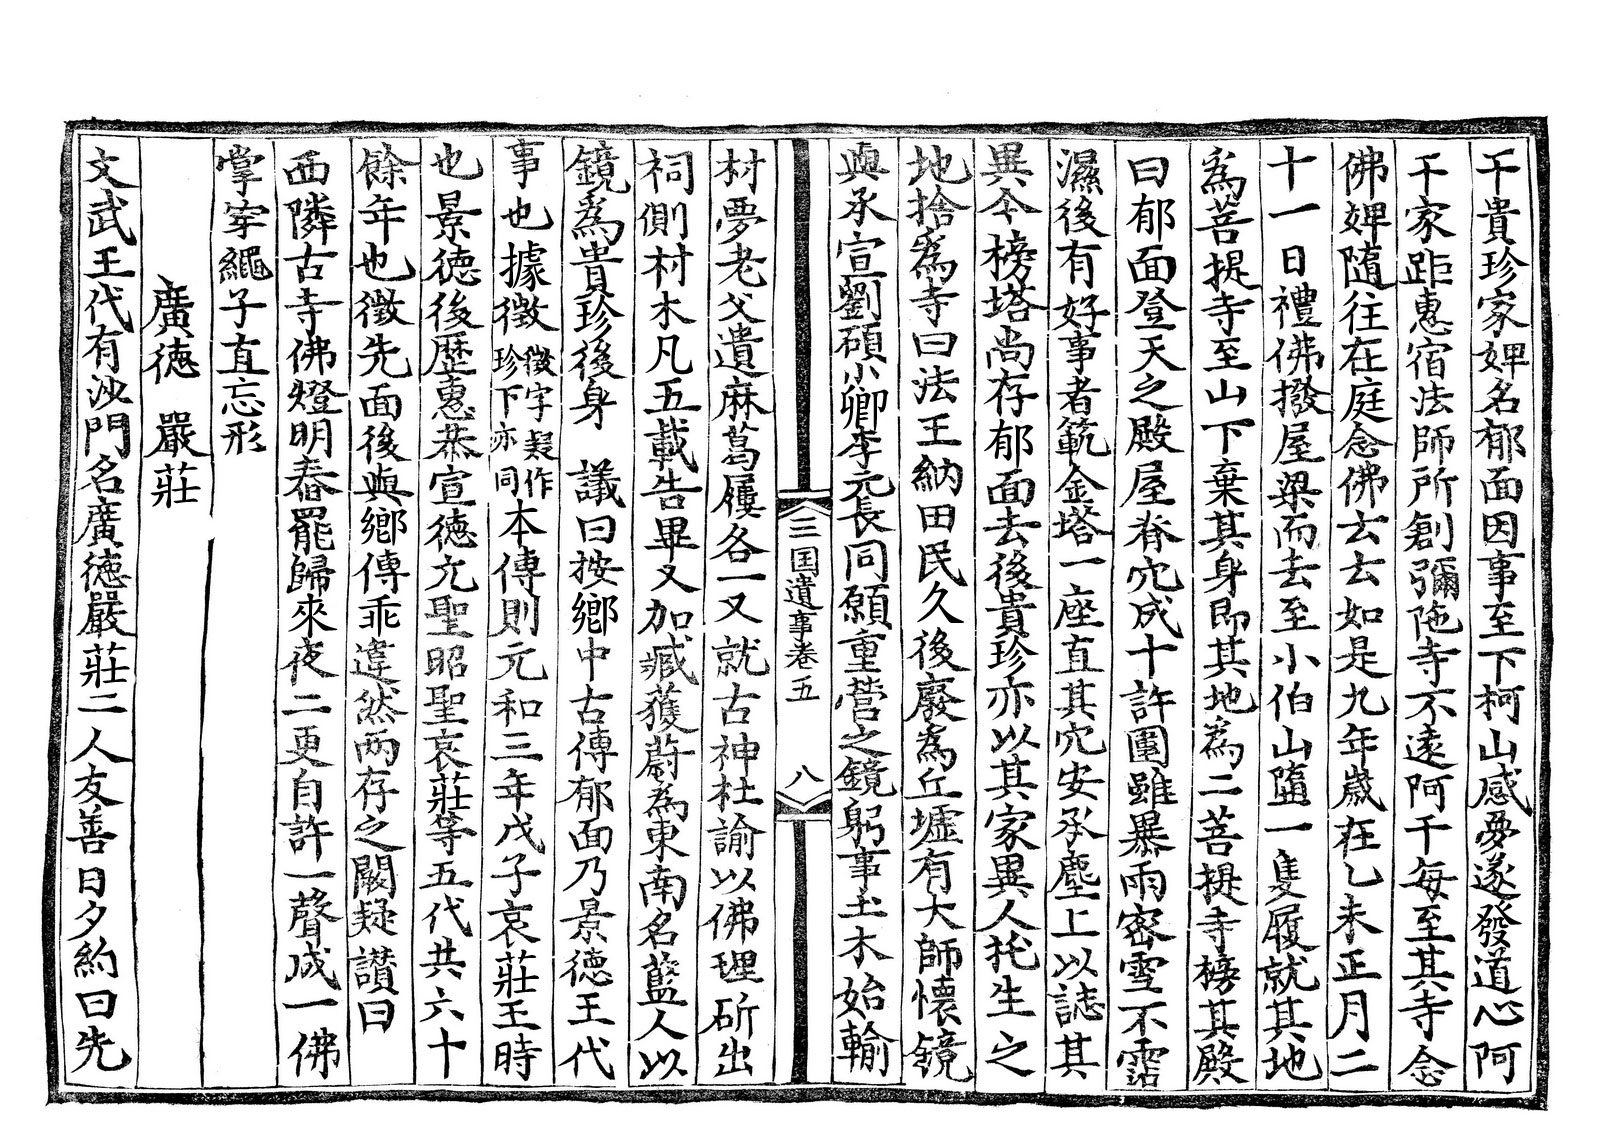 干貴珍家婢名郁面因事至下柯山感夢遂發道心阿
干家距惠宿法師所創彌陁寺不遠阿干每至其寺念
佛婢隨往在庭念佛云云如是九年歲在乙未正月二
十一日禮佛撥屋梁而去至小伯山墮一隻履就其地
爲菩提寺至山下棄其身即其地爲二菩提寺榜其殿
曰郁面登天之殿屋脊穴成十許圍雖暴雨密雪不霑
濕後有好事者範金塔一座直其穴安承塵上以誌其
異今榜塔尚存郁面去後貴珍亦以其家異人托生之
地捨爲寺曰法王納田民久後廢爲丘墟有大師懷鏡
與承宣劉碩小卿李元長同願重營之鏡躬事土木始輸
三国遺事卷五　八
材夢老父遺麻葛屨各一又就古神社諭以佛理斫出
祠側材木凡五載告畢又加臧獲蔚爲東南名藍人以
鏡爲貴珍後身　議曰按鄉中古傳郁面乃景德王代
事也據徵徵字疑作珍下亦同本傳則元和三年戊子哀莊王時
也景徳後歷惠恭宣徳元聖昭聖哀莊等五代共六十
餘年也徵先面後與鄉傳乖違然兩存之闕疑讃曰
西隣古寺佛燈明舂罷歸來夜二更自許一聲成一佛
掌穿繩子直忘形
廣徳　嚴莊
文武王代有沙門名廣徳嚴莊二人友善日夕約曰先